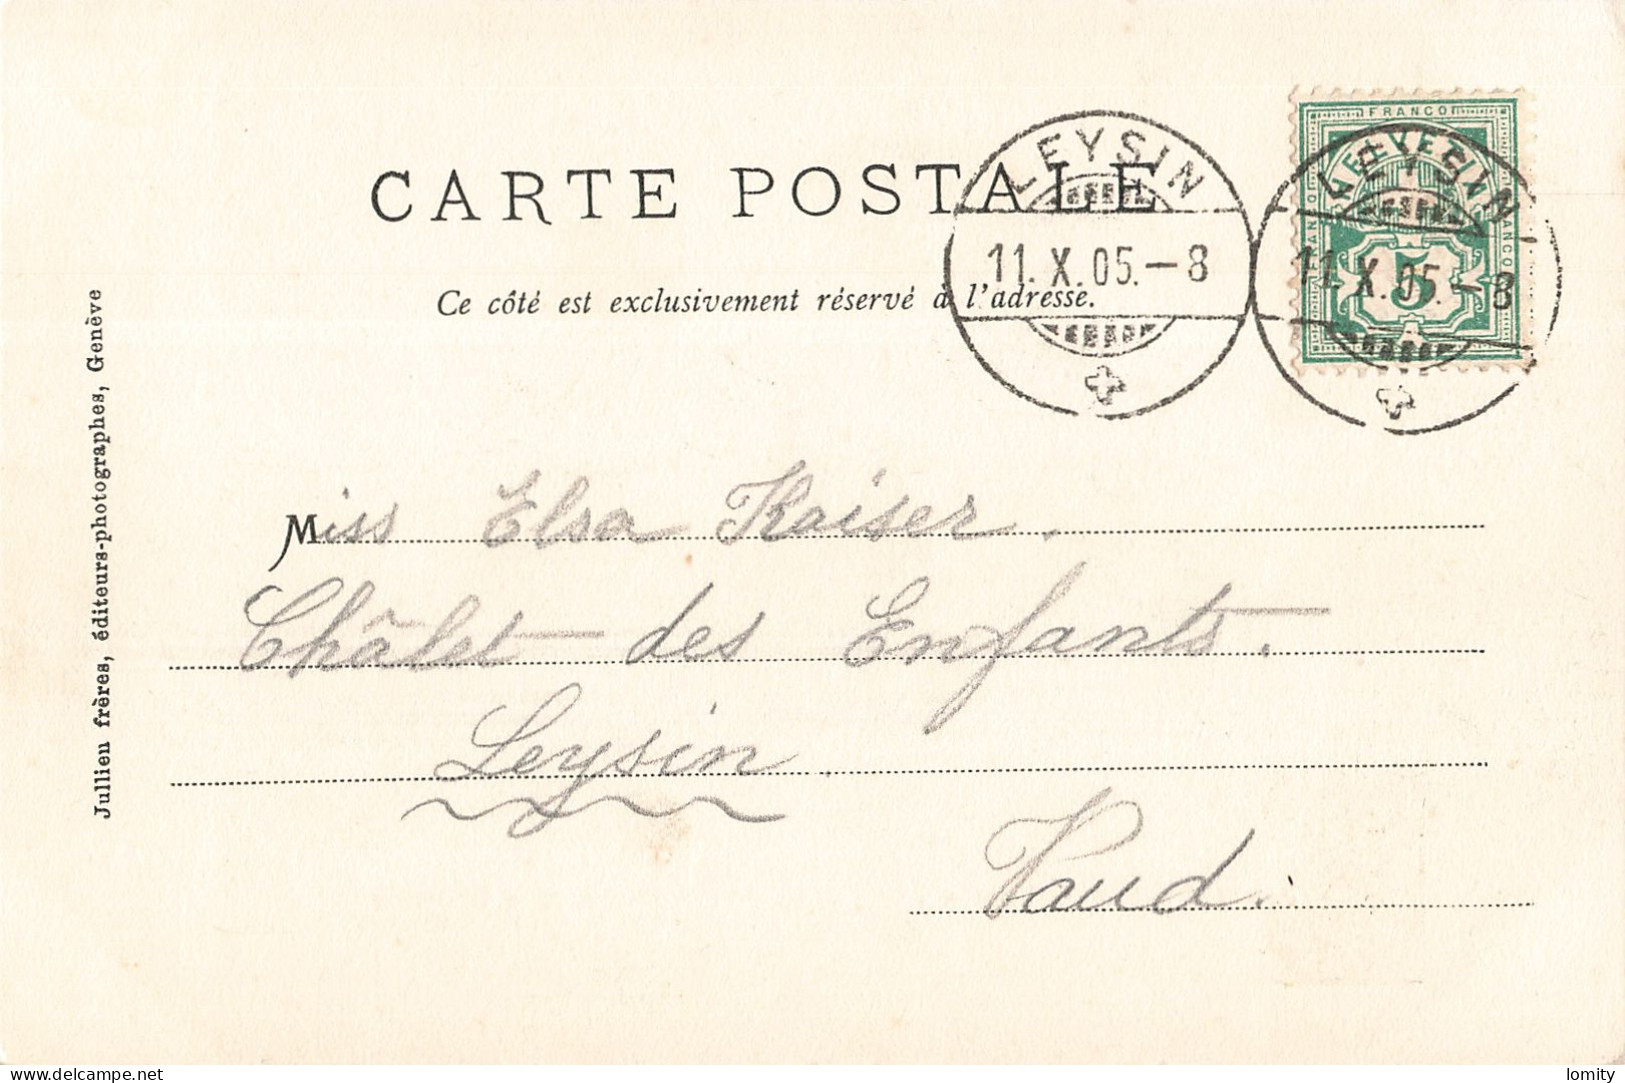 FRANCO
HELVETIA
FRANCO
FRANCO
5
LEYSIN
11.X.05.–8
LEYSIN
11.X.05.–8
CARTE POSTALE
Ce côté est exclusivement réservé à l'adresse.
Julien frères, éditeurs-photographes, Genève
Miss Elsa Kaiser.
Châlet des Enfants.
Leysin
Vaud.
delcampe.net
lomity